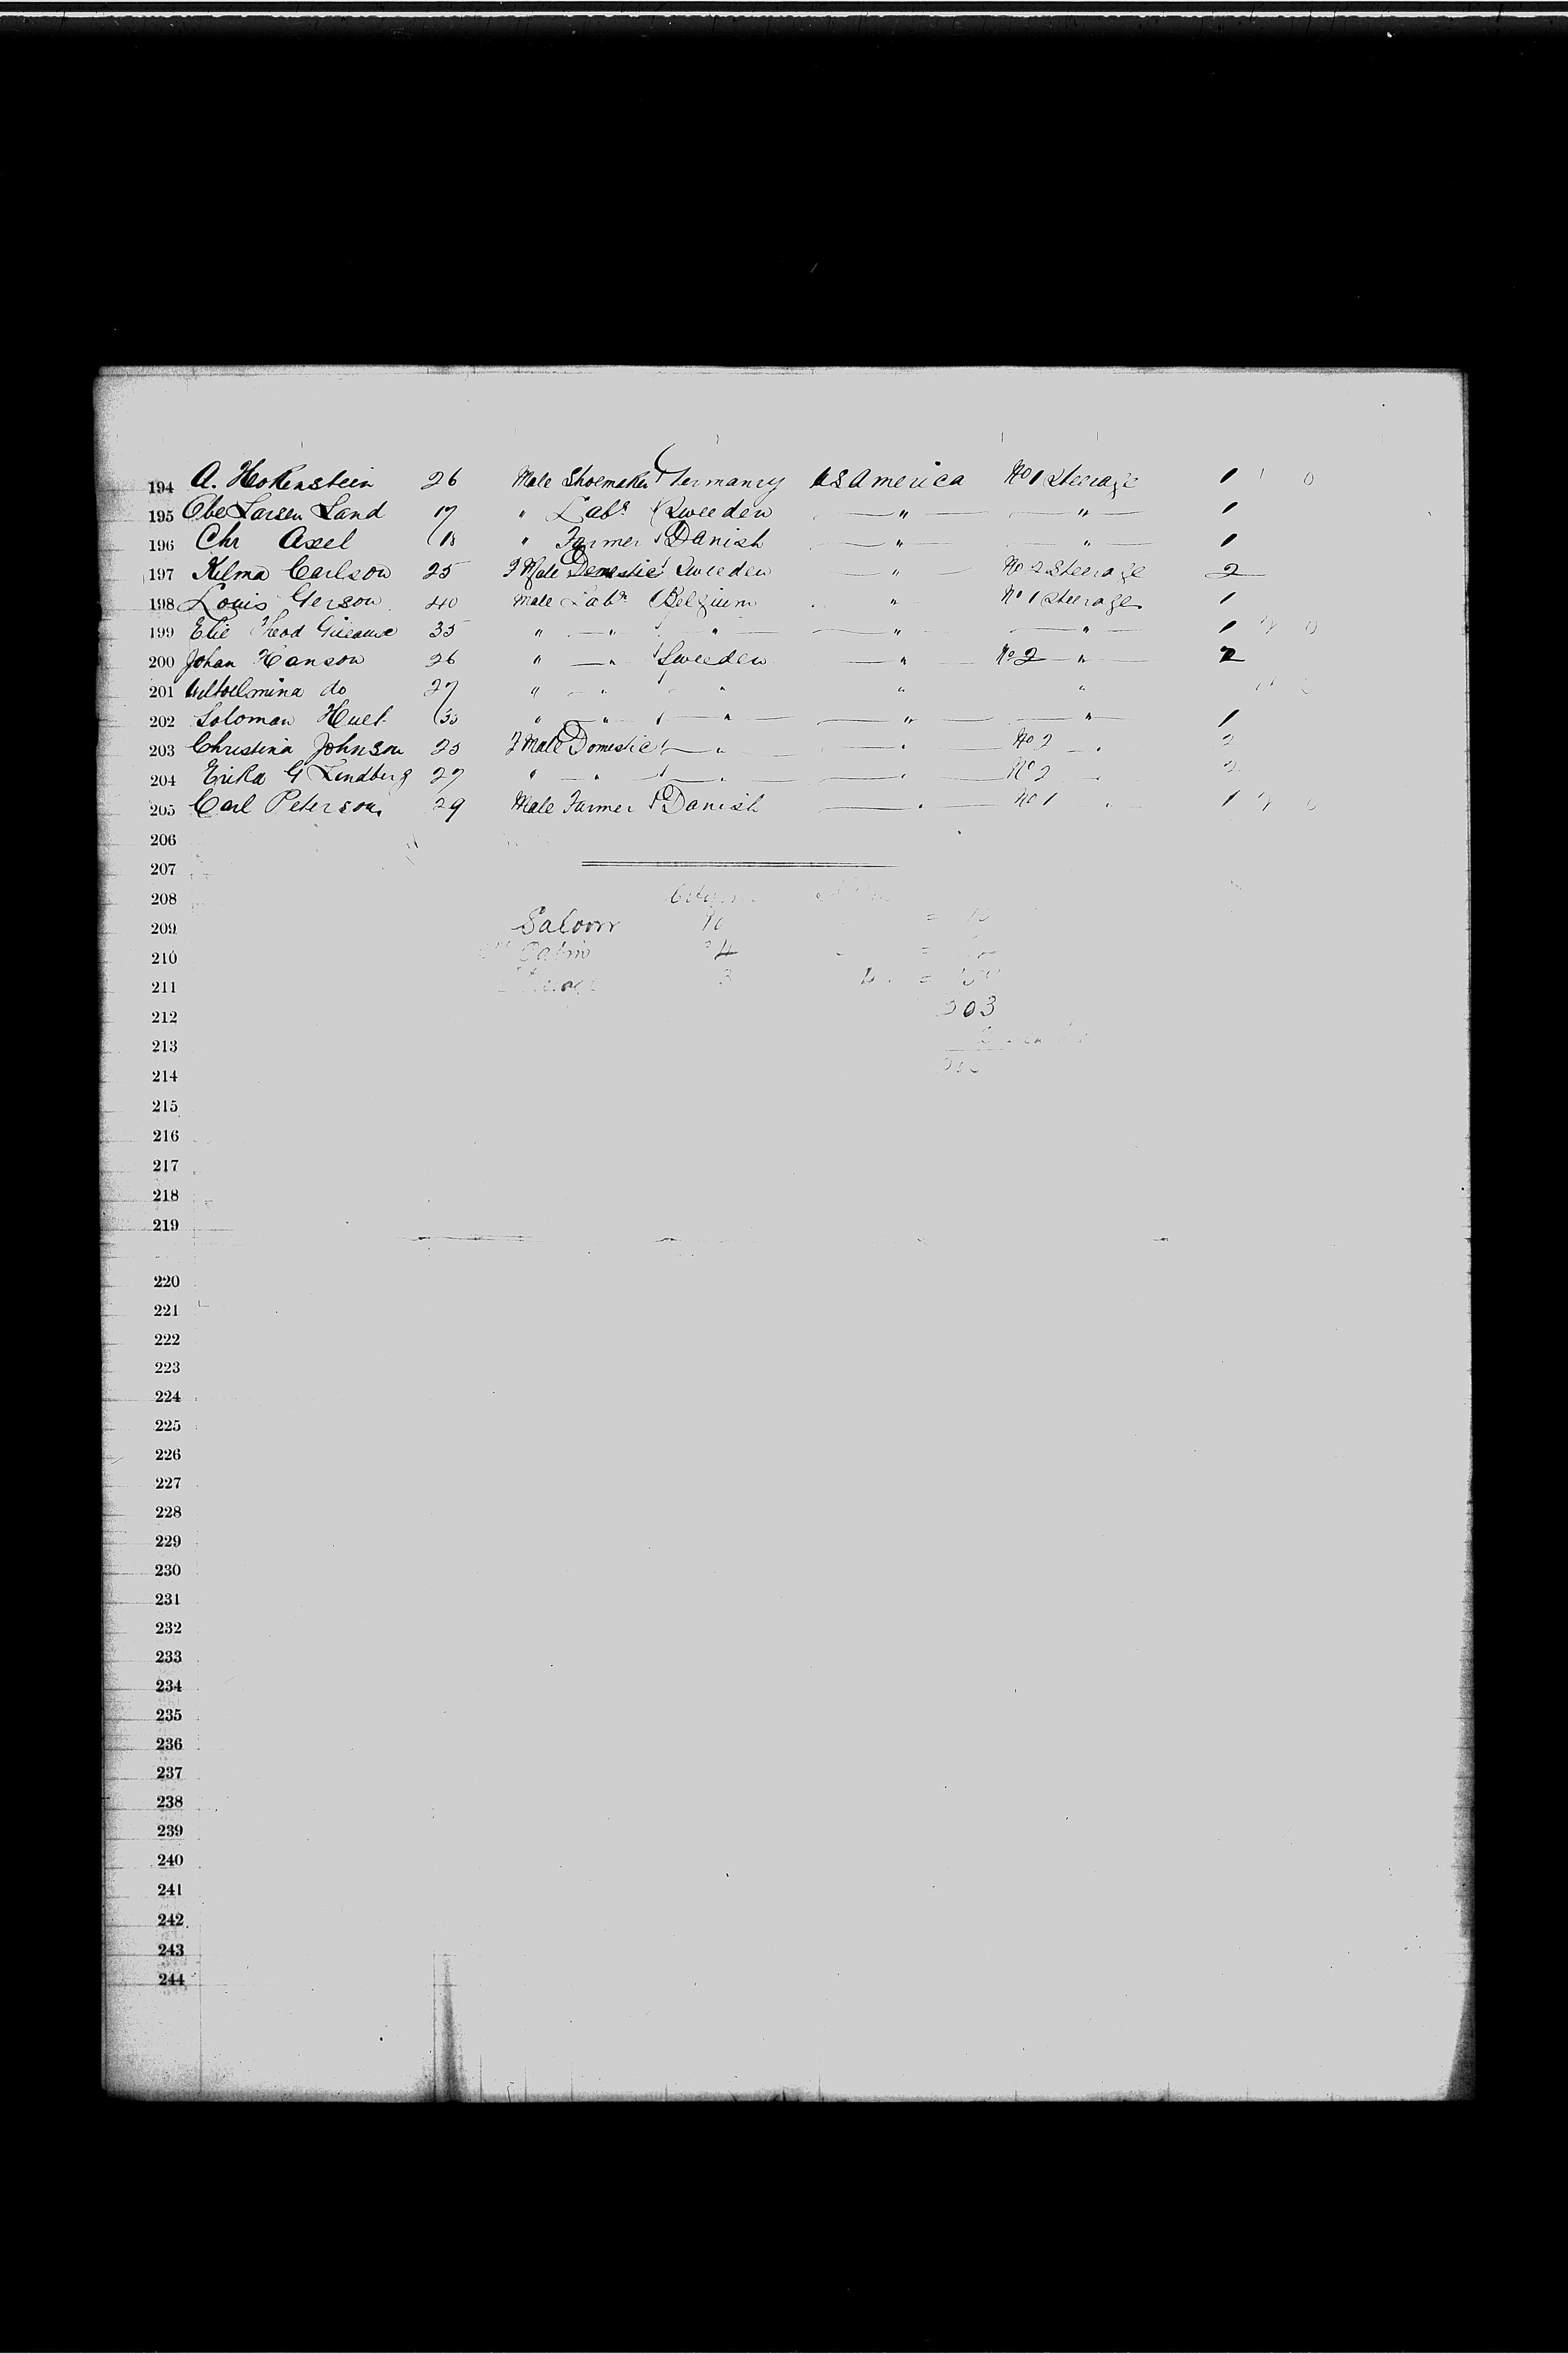 194 A. Hokenstein 26 Male Shoemaker Germany U S America No 1 Steerage 1
195 Obe Larsen Land 17 " Labr Sweeden " " 1
196 Chr Axel 18 " Farmer Danish " " 1
197 Kilma Carlson 25 FMale Domestic Sweeden " No 2 Steerage 2
198 Louis Gerson 40 Male Labr Belgium " No 1 Steerage 1
199 Elie Theod 35 " " " " " 1
200 Johan Hanson 26 " " Sweeden " No 2 " 2
201 Wilhelmina do 27 " " " " "
202 Soloman Huet 33 " " " " " 1
203 Christina Johnson 25 FMale Domestic " " No 2 " 2
204 Erika G Lindberg 27 " " " " No 2 " 2
205 Carl Peterson 29 Male Farmer Danish " No 1 " 1
206
207
208
209 Saloon 10 =
210 Cabin 4 =
211 3 =
212 203
213
214
215
216
217
218
219
220
221
222
223
224
225
226
227
228
229
230
231
232
233
234
235
236
237
238
239
240
241
242
243
244